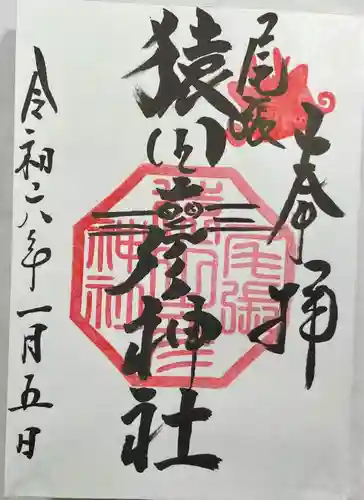 奉拝
尾張
猿田彦神社
尾張
猿田彦
神社
令和八年一月五日